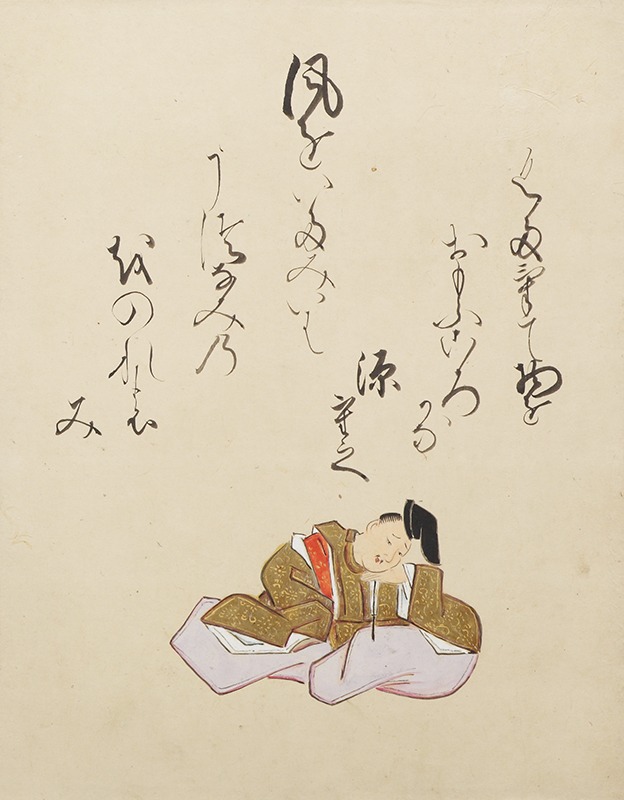 風をいたみいは
うつなみの
をのれの
み
くたけて物を
おもふころ
かな
源
重之